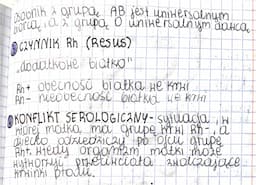 osobnik z grupą AB jest uniwersalnym
biorcą, a z grupą 0 uniwersalnym dawcą.
CZYNNIK Rh (RESUS)
„dodatkowe białko"
Rh+ obecność białka we krwi
Rh- nieobecność białka we krwi
KONFLIKT SEROLOGICZNY- sytuacja, w
której matka ma grupę krwi Rh-, a
dziecko odziedziczy po ojcu grupę
Rh+. Wtedy organizm matki może
wytworzyć przeciwciała zwalczające
krwinki płodu.